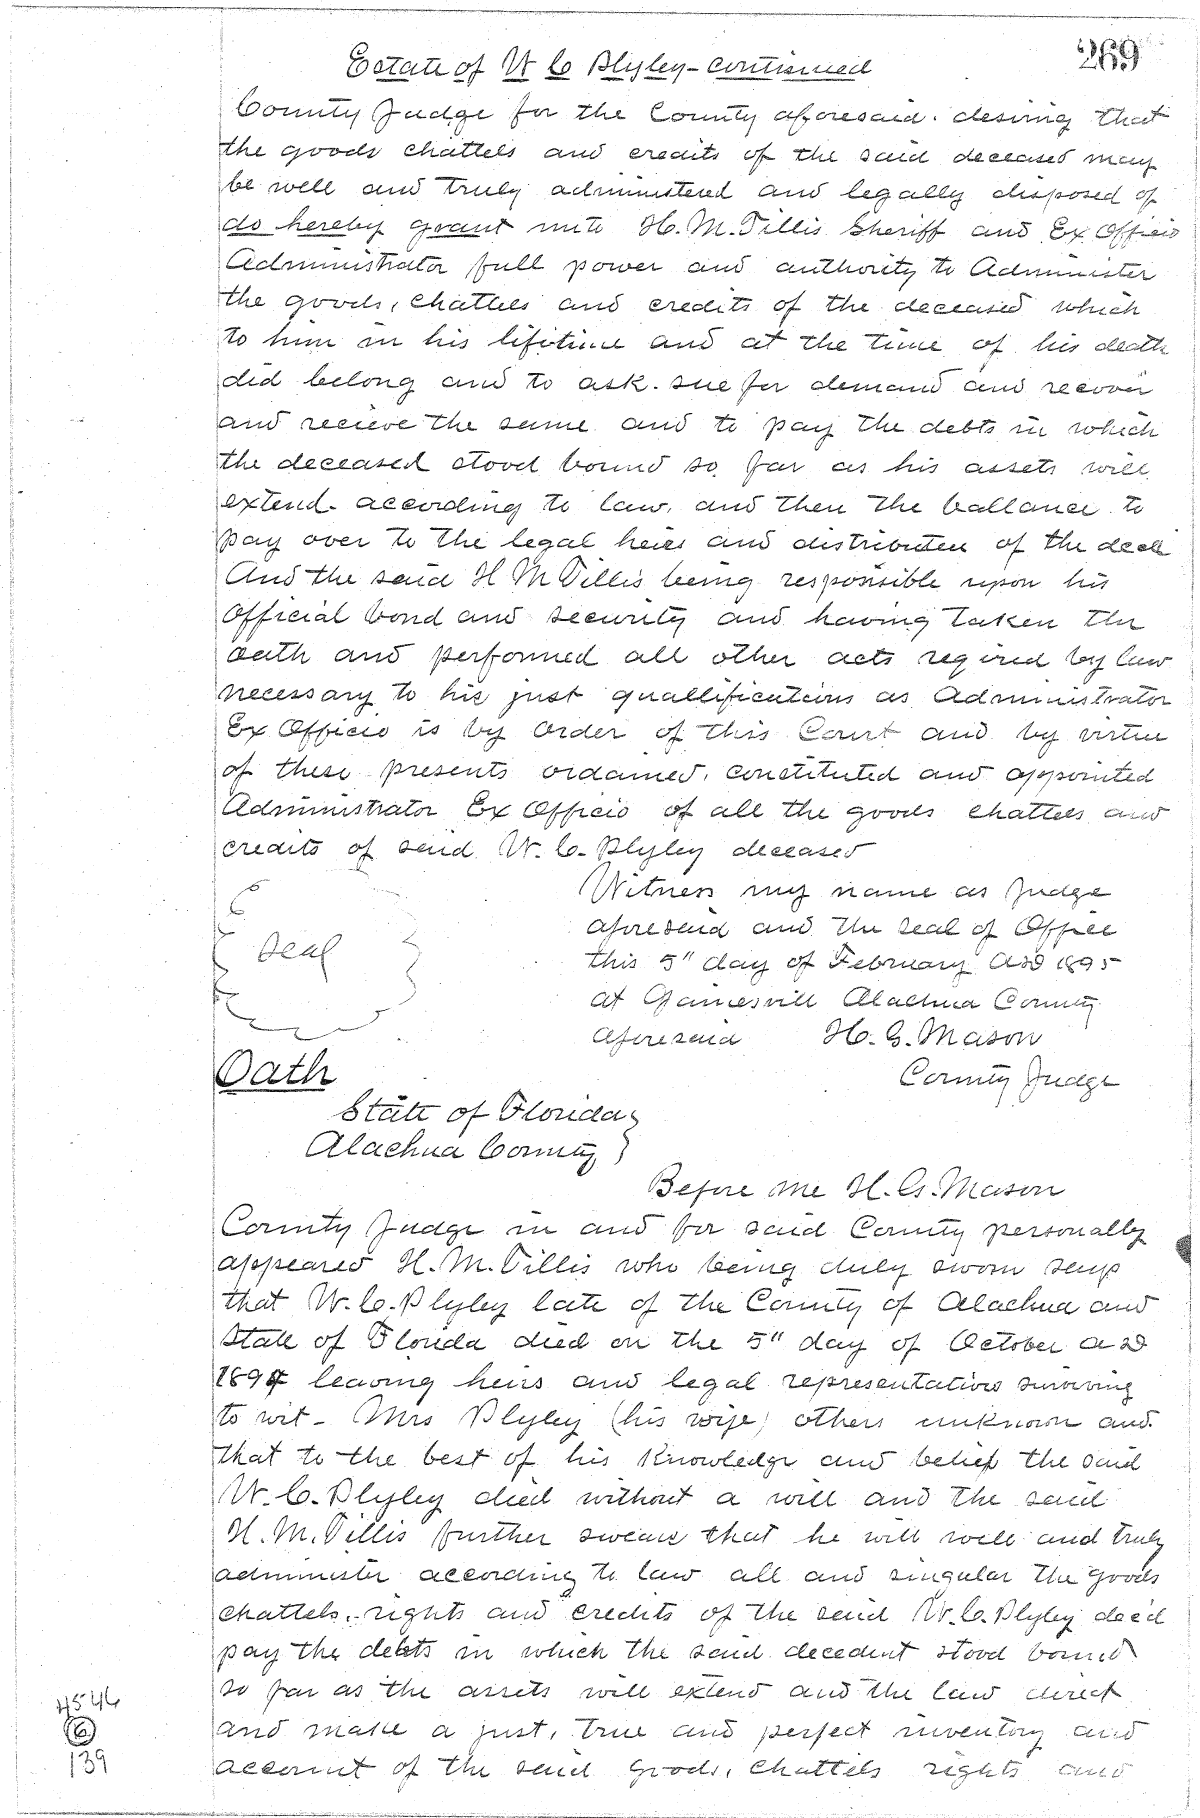 269
Estate of W C Plyley - continued
County Judge for the County aforesaid. desiring that
the goods chattels and credits of the said deceased may
be well and truly administered and legally disposed of
do hereby grant unto H. M. Tillis Sheriff and Ex Officio
Administrator full power and authority to Administer
the goods, chattels and credits of the deceased which
to him in his lifetime and at the time of his death
did belong and to ask. sue for demand and recover
and recieve the same and to pay the debts in which
the deceased stood bound so far as his assets will
extend according to law, and then the ballance to
pay over to the legal heirs and distributee of the
And the said H M Tillis being responsible upon his
Official bond and security and having taken the
oath and performed all other acts reqired by law
necessary to his just quallifications as Administrator
Ex Officio is by order of this Court and by virtue
of these presents ordained, constituted and appointed
Administrator Ex Officio of all the goods chattels and
credits of said W. C. Plyley deceased
Witness my name as Judge
aforesaid and the seal of Office
this 5" day of February AD 1895
at Gainesvill Alachua County
aforesaid H. G. Mason
County Judge
seal
Oath
State of Florida }
Alachua County }
Before me H. G. Mason
County Judge in and for said County personally
appeared H. M. Tillis who being duly sworn says
that W. C. Plyley late of the County of Alachua and
State of Florida died on the 5" day of October AD
1894 leaving heirs and legal representatives surviving
to wit - Mrs Plyley (his wife) others unknown and
that to the best of his knowledge and belief the said
W. C. Plyley died without a will and the said
H. M. Tillis further swears that he will well and truly
administer according to law all and singular the goods
chattels, rights and credits of the said W. C. Plyley dec'd
pay the debts in which the said decedent stood bound
so far as the assets will extend and the law direct
and make a just, true and perfect inventory and
account of the said goods, chattels rights and
4546
6
139